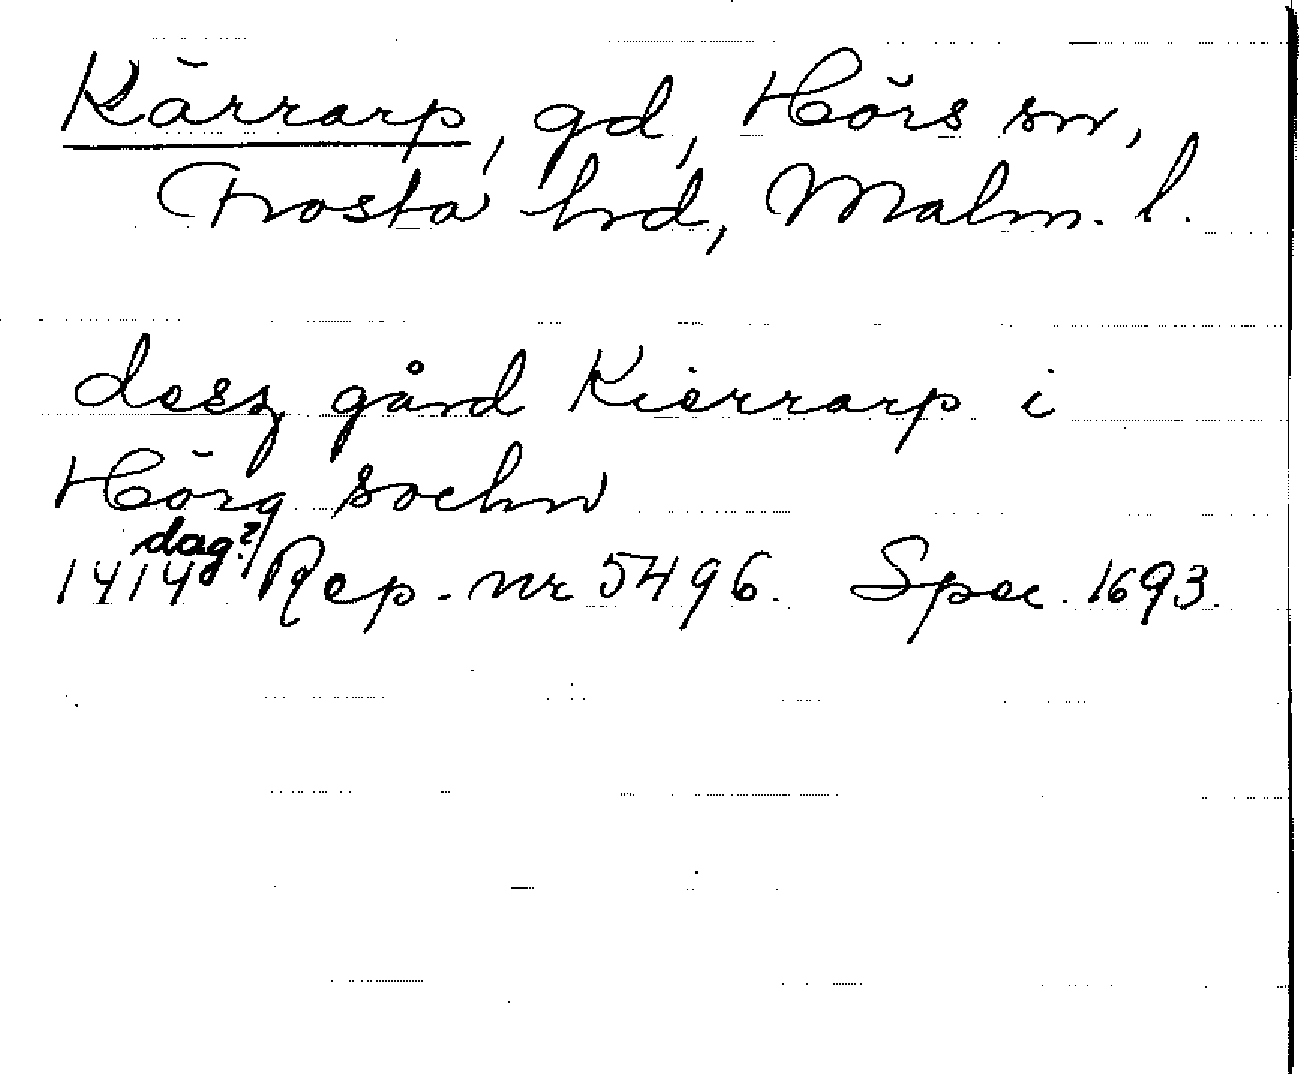 Kärrarp, gd, Hörs sn,
Frosta hrd, Malm. l.
desz gård Kierrarp i
Hörg sochn
dag?
1414 Rep. nr 5496. Spec. 1693.